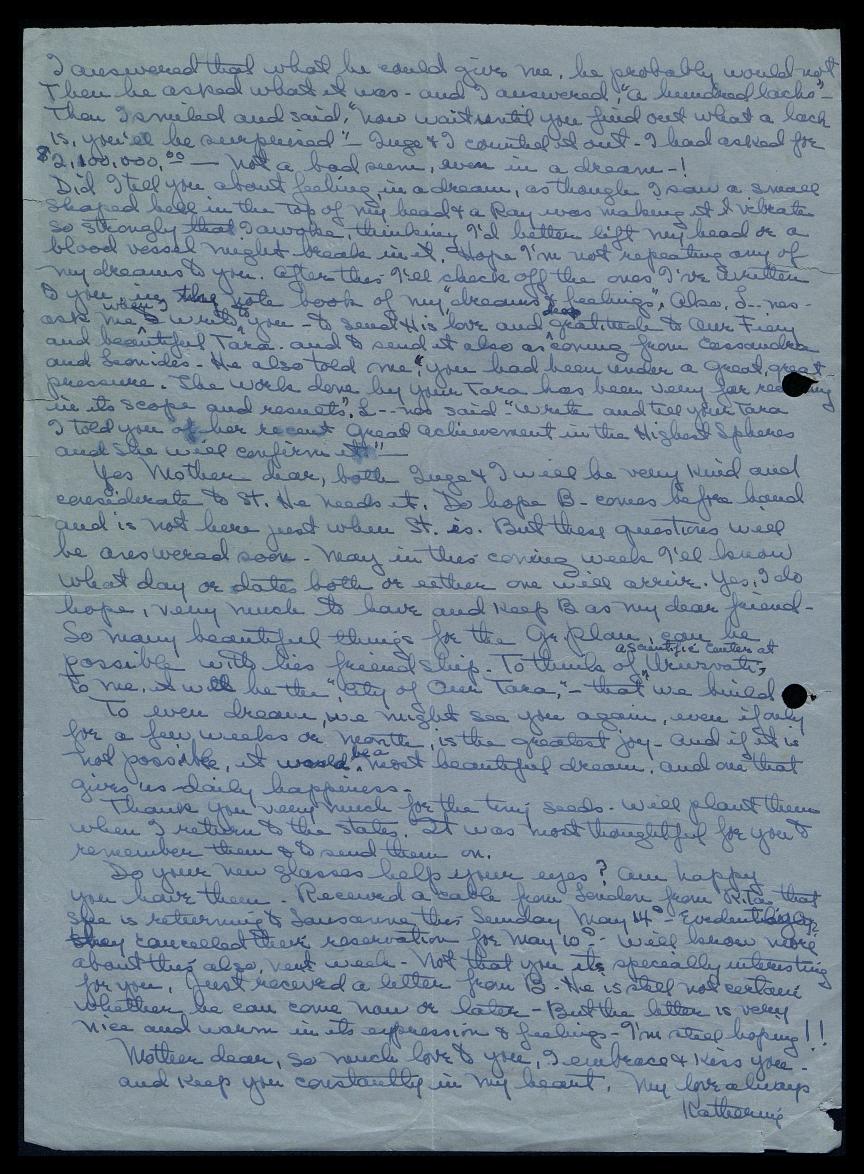 I answered that what he could give me, he probably would not
Then he asked what it was - and I answered, "a hundred lacks" -
Then I smiled and said, "now wait until you find out what a lack
is, you'll be surprised" - Inge & I counted it out - I had asked for
$2,100,000.00 — Not a bad seem, even in a dream - !
Did I tell you about feeling, in a dream, as though I saw a small
shaped bell in the top of my head & a Ray was making it vibrate
so strongly that I awoke, thinking I'd better lift my head or a
blood vessel might break in it. Hope I'm not repeating any of
my dreams to you. After this I'll check off the ones I've written
to you in the note book of my "dreams & feelings". Also, L-- nos-
ask me when I write to you - to send His love and deep gratitude to Our Fiery
and beautiful Tara. and to send it also as coming from Cassandra
and Leonides - He also told me, "you had been under a great, great
pressure. The work done by your Tara has been very far reaching
in its scope and results". L-- nos said "Write and tell your Tara
I told you of her recent Great achievement in the Highest Spheres
and She will confirm it" -
Yes Mother dear, both Inge & I will be very kind and
considerate to St. He needs it. Do hope B- comes before hand
and is not here just when St. is. But these questions will
be answered soon - May in this coming week I'll know
what day or dates both or either one will arrive. Yes, I do
hope, very much to have and keep B as my dear friend -
So many beautiful things for the Gr. Plan, can be
possible with his friendship. To think of a scientific center at "Urusvati",
to me, it will be the "City of Our Tara," - that we build
To even dream, we might see you again, even if only
for a few weeks or month, is the greatest joy - And if it is
not possible, it would be a most beautiful dream, and one that
gives us daily happiness -
Thank you very much for the tiny seeds. Will plant them
when I return to the States. It was most thoughtful for you to
remember them & to send them on.
Do your new glasses help your eyes? Am happy
you have them. Received a cable from London from R.Tas that
she is returning to Lausanne this Sunday May 14th Evidently
they cancelled their reservation for May 10th - Will know more
about this also, next week - Not that you its specially interesting
for you, Just received a letter from B. He is still not certain
whether he can come now or later - But the letter is very
nice and warm in its expression & feelings - I'm still hoping!!
Mother dear, so much love to you, I embrace & kiss you -
and keep you constantly in my heart. My love always
Katherine